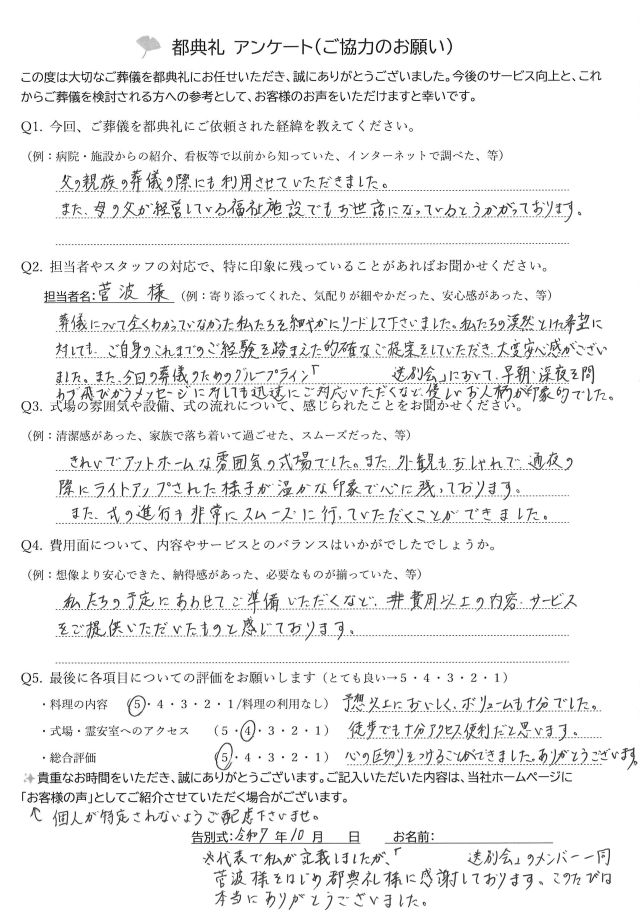 都典礼 アンケート(ご協力のお願い)
この度は大切なご葬儀を都典礼にお任せいただき、誠にありがとうございました。今後のサービス向上と、これ
からご葬儀を検討される方への参考として、お客様のお声をいただけますと幸いです。
Q1. 今回、ご葬儀を都典礼にご依頼された経緯を教えてください。
(例:病院・施設からの紹介、看板等で以前から知っていた、インターネットで調べた、等)
父の親族の葬儀の際にも利用させていただきました。
また、母の父が経営している福祉施設でもお世話になっているとうかがっております。
Q2. 担当者やスタッフの対応で、特に印象に残っていることがあればお聞かせください。
担当者名:菅波 様 (例:寄り添ってくれた、気配りが細やかだった、安心感があった、等)
葬儀について全くわかっていなかった私たちを細やかにリードして下さいました。私たちの漠然とした希望に
対しても、ご自身のこれまでのご経験を踏まえた的確なご提案をしていただき、大変安心感がござい
ました。また、今回の葬儀のためのグループライン「 送別会」において、早朝・深夜を問
わず飛びかうメッセージに対しても迅速にご対応いただくなど、優しいお人柄が印象的でした。
Q3. 式場の雰囲気や設備、式の流れについて、感じられたことをお聞かせください。
(例:清潔感があった、家族で落ち着いて過ごせた、スムーズだった、等)
きれいでアットホームな雰囲気の式場でした。また、外観もおしゃれで、通夜の
際にライトアップされた様子が温かな印象で心に残っております。
また、式の進行も非常にスムーズに行っていただくことができました。
Q4. 費用面について、内容やサービスとのバランスはいかがでしたでしょうか。
(例:想像より安心できた、納得感があった、必要なものが揃っていた、等)
私たちの予定にあわせてご準備いただくなど、費用以上の内容・サービス
をご提供いただいたものと感じております。
Q5. 最後に各項目についての評価をお願いします(とても良い→5・4・3・2・1)
・料理の内容 (5・4・3・2・1/料理の利用なし) 予想以上においしく、ボリュームも十分でした。
・式場・霊安室へのアクセス (5・4・3・2・1) 徒歩でも十分アクセス便利だと思います。
・総合評価 (5・4・3・2・1) 心の区切りをつけることができました。ありがとうございます。
貴重なお時間をいただき、誠にありがとうございます。ご記入いただいた内容は、当社ホームページに
「お客様の声」としてご紹介させていただく場合がございます。
↑ 個人が特定されないようご配慮下さいませ。
告別式:令和7年10月 日 お名前:
※代表で私が定載しましたが、「 送別会」のメンバー一同
菅波様をはじめ都典礼様に感謝しております。このたびは
本当にありがとうございました。